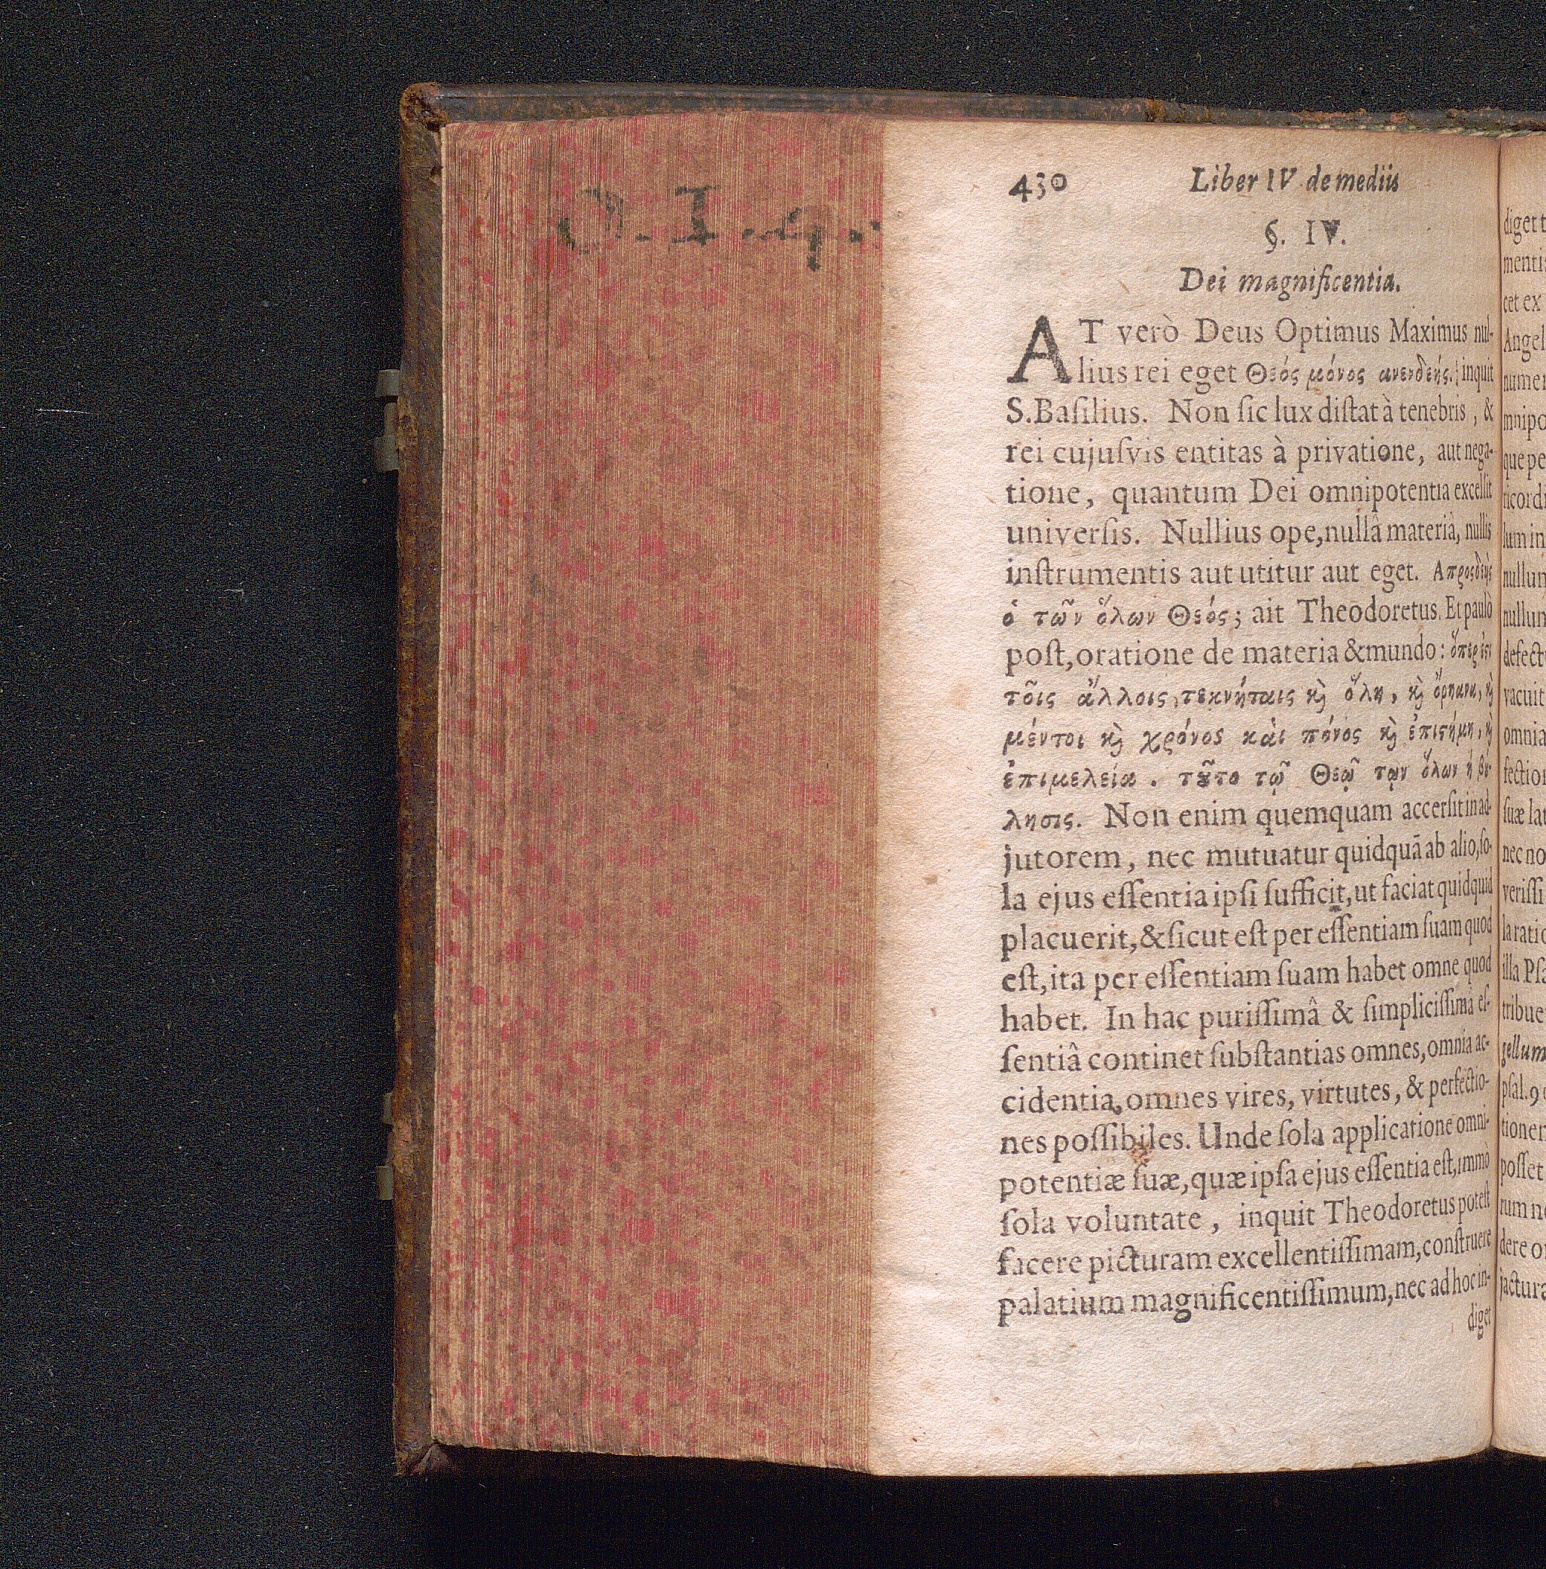 O. I. q.
430 Liber IV de mediis
§. IV.
Dei magnificentia.
AT verò Deus Optimus Maximus nul-
lius rei eget Θεός μόνος ανενδεής. inquit
S. Basilius. Non sic lux distat à tenebris, &
rei cujusvis entitas à privatione, aut nega-
tione, quantum Dei omnipotentia excellit
universis. Nullius ope, nullâ materiâ, nullis
instrumentis aut utitur aut eget. Απροςδεὴς
ὁ τῶν ὅλων Θεός; ait Theodoretus. Et paulò
post, oratione de materia & mundo: ὅπερ ἐςι
τοῖς ἄλλοις τεκνήταις κὶ ὅλη, κὶ ὄργανα, κὶ
μέντοι κὶ χρόνος κὰι πόνος κὶ ἐπιςήμη, κὶ
ἐπιμελεία. τῦτο τῷ Θεῷ των ὅλων ἡ βύ-
λησις. Non enim quemquam accersit in ad-
jutorem, nec mutuatur quidquã ab alio, so-
la ejus essentia ipsi sufficit, ut faciat quidquid
placuerit, & sicut est per essentiam suam quod
est, ita per essentiam suam habet omne quod
habet. In hac purissimâ & simplicissimâ es-
sentiâ continet substantias omnes, omnia ac-
cidentia, omnes vires, virtutes, & perfectio-
nes possibiles. Unde sola applicatione omni-
potentiæ suæ, quæ ipsa ejus essentia est, immo
sola voluntate, inquit Theodoretus potest
facere picturam excellentissimam, construere
palatium magnificentissimum, nec ad hoc in-
diget
diget t
menti
cet ex
Angel
numer
mnipo
que pe
ricordi
lum in
nullun
nullun
defect
vacuit
omnia
fectio
suæ lat
nec no
verissi
la ratio
illa Psa
tribue
gellum
psal. 9
tioner
posset
rum n
dere o
jactura